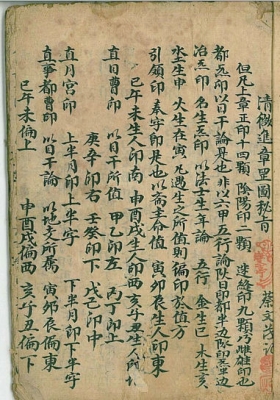 清微進章里圖秘旨 蔡文
但凡上章正印十四顆 陰陽印二顆 遶絳印九顆乃雌雄印也
都是印以日干論是也非以六甲五行論
治炁印 名生炁印 以法士生年論 五行 金生巳 木生亥
水土生申 火生在寅 凡遇生之所值則偏印於值方
引領印 奏字印是也以齋主命值 寅卯辰生人印東
巳午未生人印南 申酉戌生人印西 亥子丑生人所
直日曹印 以日干所值 甲乙印左 丙丁印上
庚辛印右 壬癸印下 戊己印中
直月宮印 上半月印上半字 下半月印下半字
直事都曹印 以日干論 以日干所屬 寅卯辰偏東
巳午未偏上 申酉戌偏西 亥子丑偏下